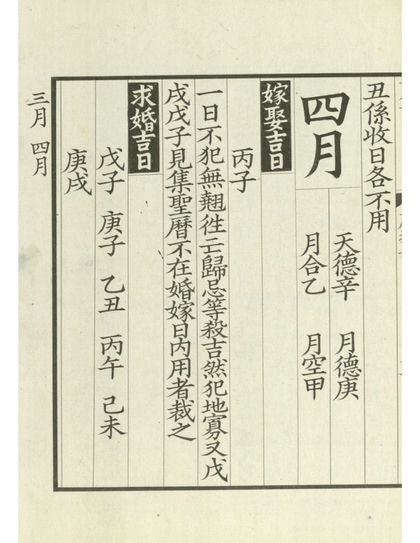 丑係收日各不用
四月
天德辛　月德庚
月合乙　月空甲
嫁娶吉日
丙子
一日不犯無翹徃亡歸忌等殺吉然犯地寡又戊
戌戊子見集聖曆不在婚嫁日内用者裁之
求婚吉日
戊子　庚子　乙丑　丙午　己未
庚戌
三月　四月